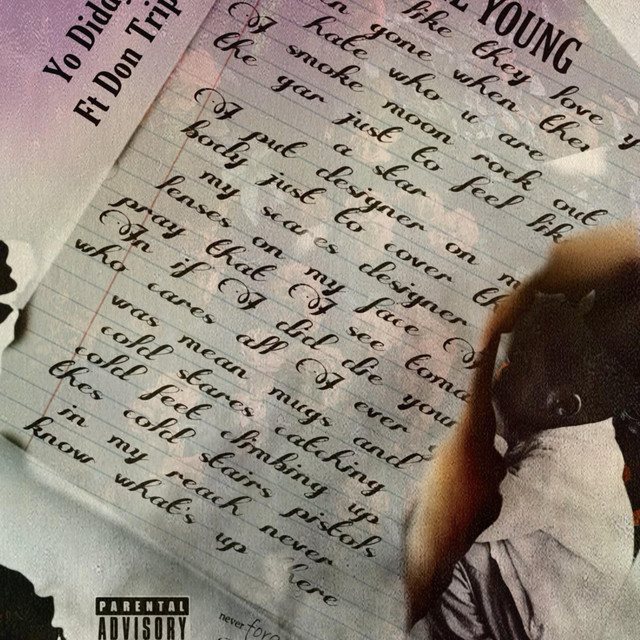 Yo Diddy
Ft Don Trip
YOUNG
like they love
gone when they
hate who u are
I smoke moon rock out
the gar just to feel like
a star
I put designer on my
body just to cover the
my scares designer
lenses on my face I
pray that I see tomo
In if I did die your
who cares all I ever
was mean mugs and
cold stares catching
cold feet climbing up
thes cold stairs pistols
in my reach never
know what's up
here
never
PARENTAL
ADVISORY